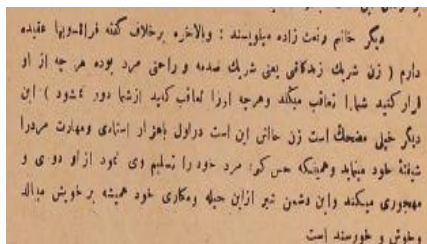 دیگر خانم رفعت زاده مینویسند : وبالاخره برخلاف گفته فرانسویها عقیده
دارم ( زن شریك زندگانی یعنی شریك صدمه و راحتی مرد بوده هر چه از او
فرار کنید شمارا تعاقب میکند وهرچه اورا تعاقب کنید ازشما دور میشود ) این
دیگر خیلی مضحك است زن خائن این است دراول باهزار استادی ومهارت مردرا
شیفتهٔ خود مینماید وهمینکه حس کرد مرد خود را تسلیم وی نمود ازاو دوری و
مهجوری میکند واین دشمن شیر ازاین حیله ومکاری خود همیشه برخویش میبالد
وخوش و خورسند است